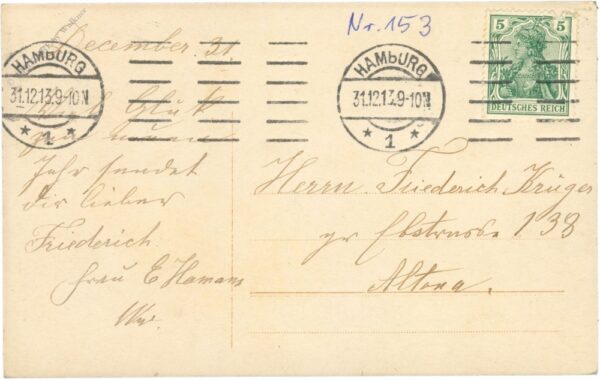 Nr. 153
December 31.
HAMBURG
31.12.13.9-10N
* 1 *
HAMBURG
31.12.13.9-10N
* 1 *
5 5
DEUTSCHES REICH
Viel Glück
Jahr sendet
dir lieber
Friederich
Frau E Hamann
Wwe.
Herrn Friederich Krüger
gr Elbstrasse 138
Altona.